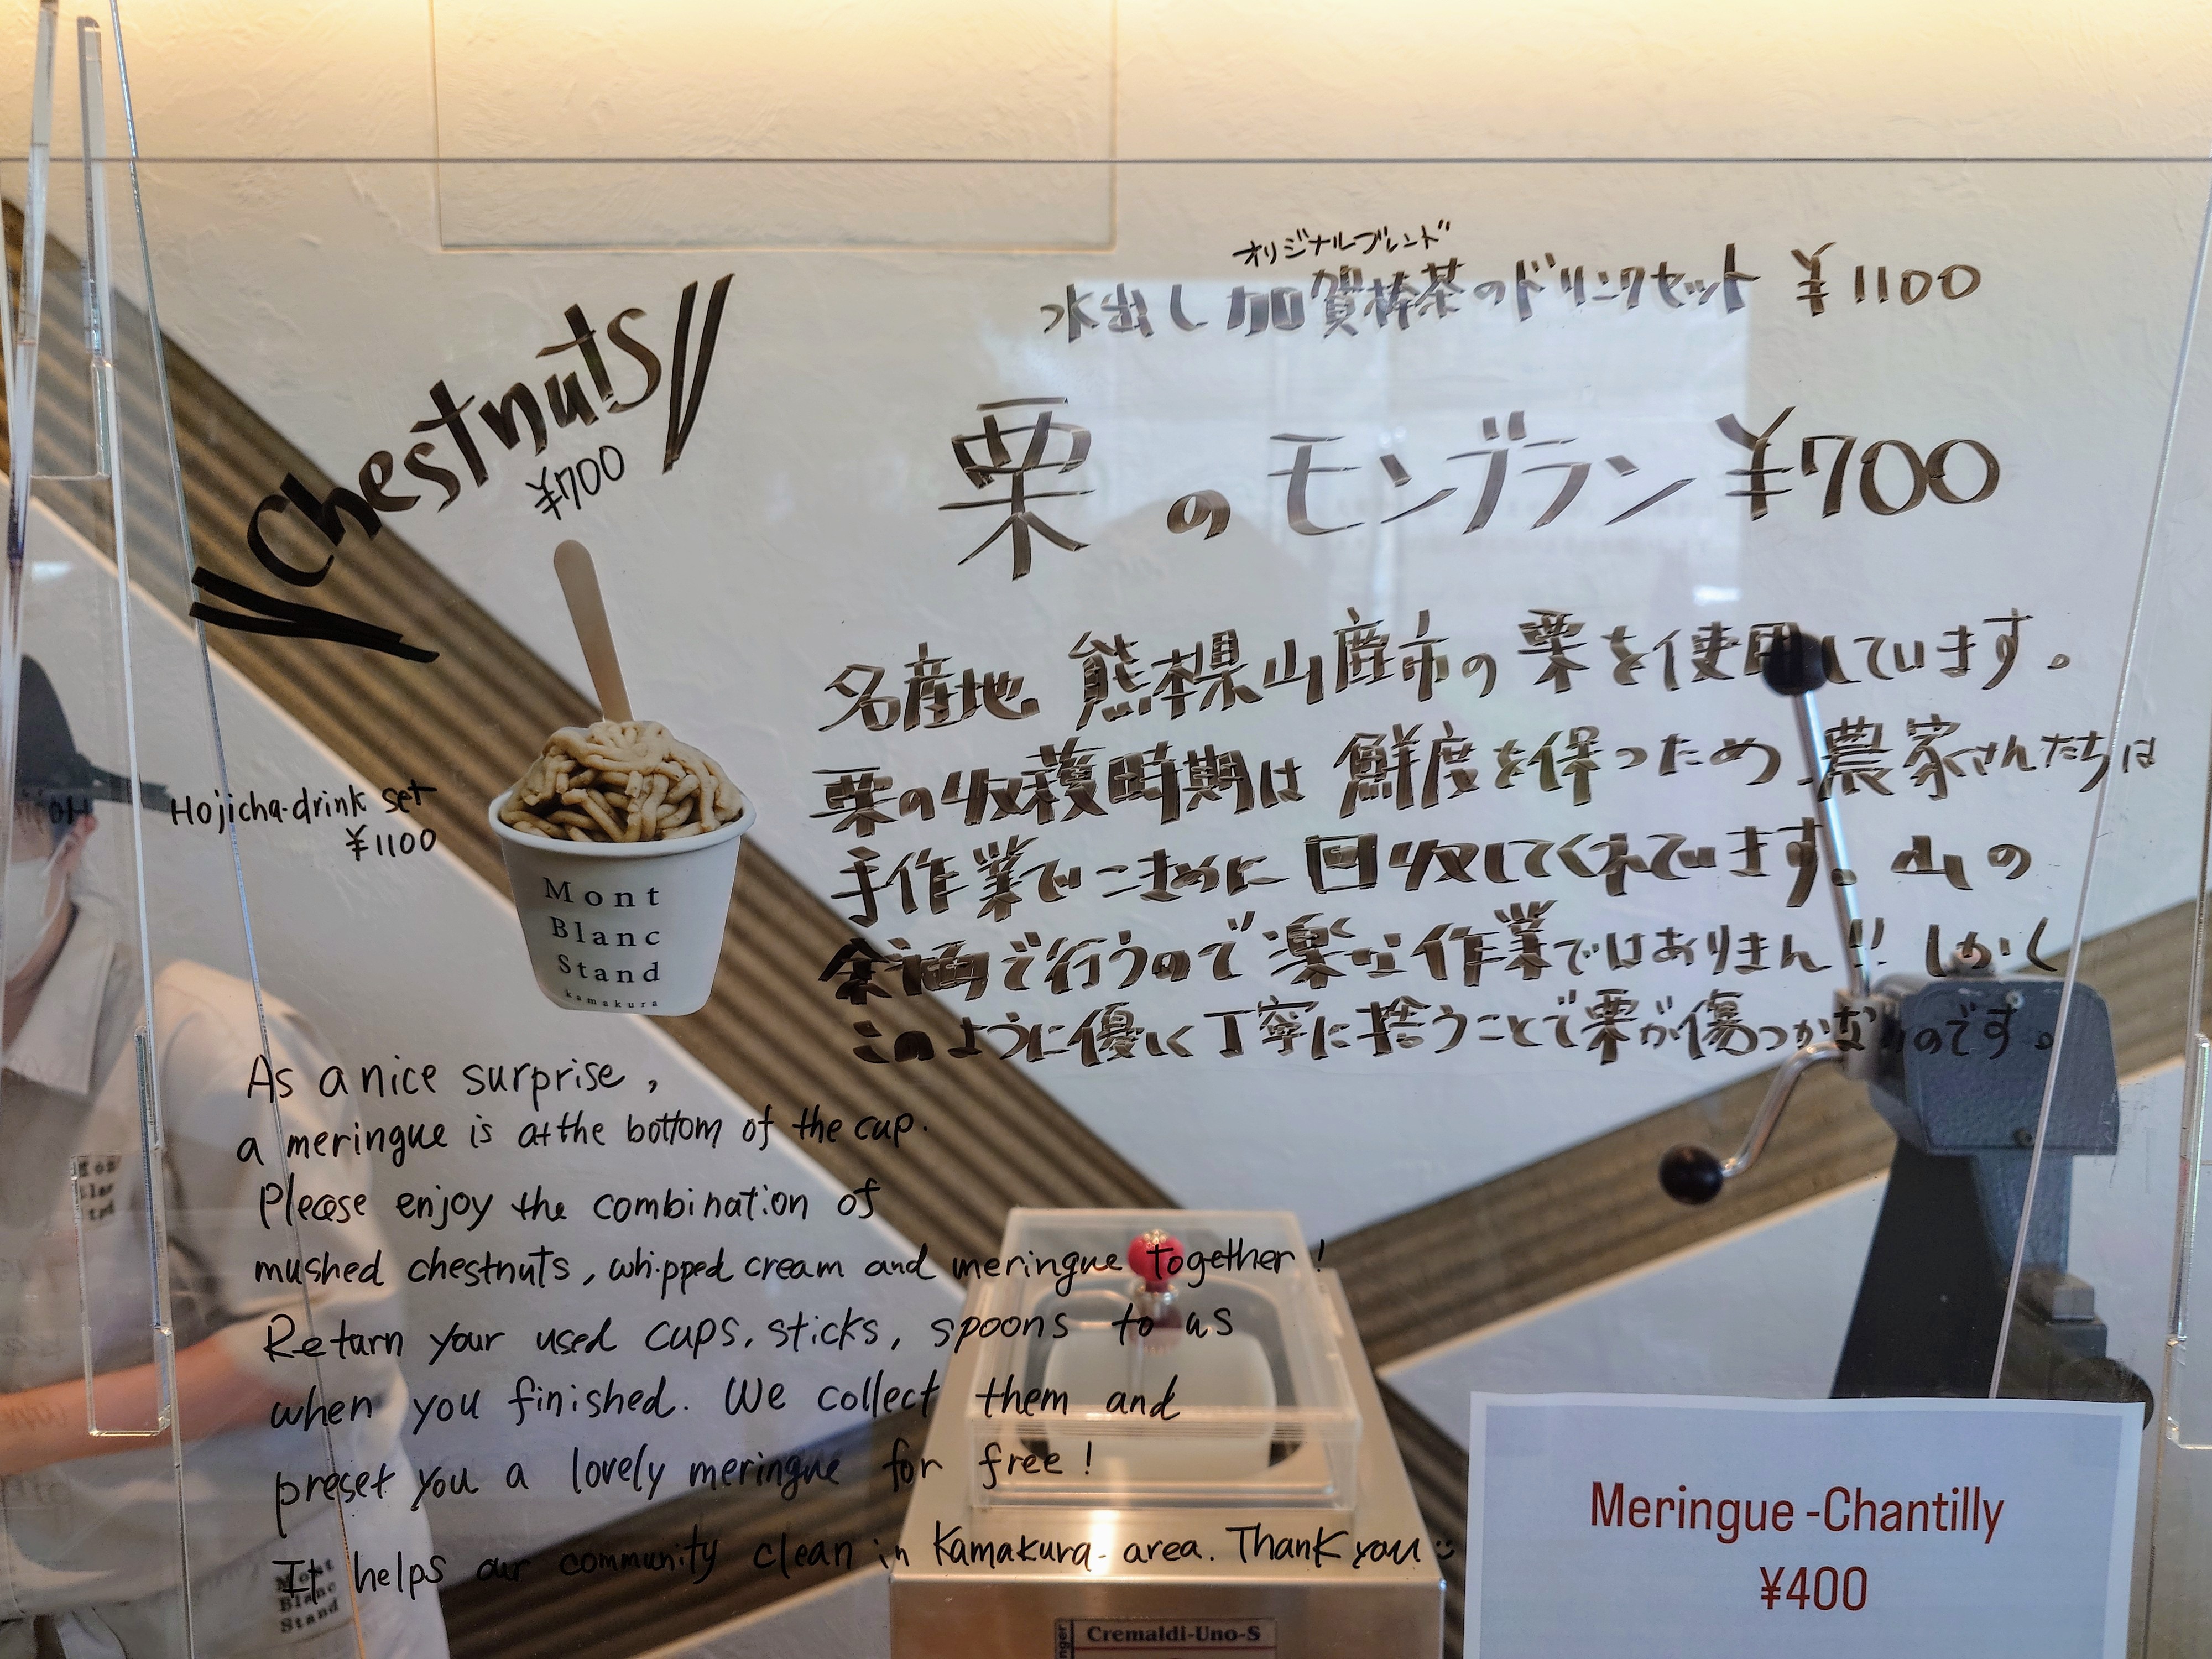 オリジナルブレンド
水出し加賀棒茶のドリンクセット ¥1100
Chestnuts
¥700
栗のモンブラン ¥700
名産地 熊本県山鹿市の栗を使用しています。
栗の収穫時期は鮮度を保つため、農家さんたちは
手作業でこまめに回収してくれています。山の
中で行うので楽な作業ではありません!! しかし
このように優しく丁寧に捨うことで栗が傷つかないのです。
Hojicha-drink set
¥1100
Mont
Blanc
Stand
kamakura
As a nice surprise,
a meringue is at the bottom of the cup.
Please enjoy the combination of
mushed chestnuts, whipped cream and meringue together!
Return your used cups, sticks, spoons to us
when you finished. We collect them and
preset you a lovely meringue for free!
It helps our community clean in Kamakura area. Thank you
Mont
Blanc
Stand
Cremaldi-Uno-S
Meringue-Chantilly
¥400